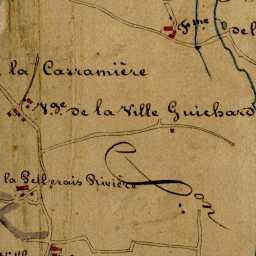 Fme de l
la Carramière
Vge de la Ville Guichard
la Pellerais Rivière